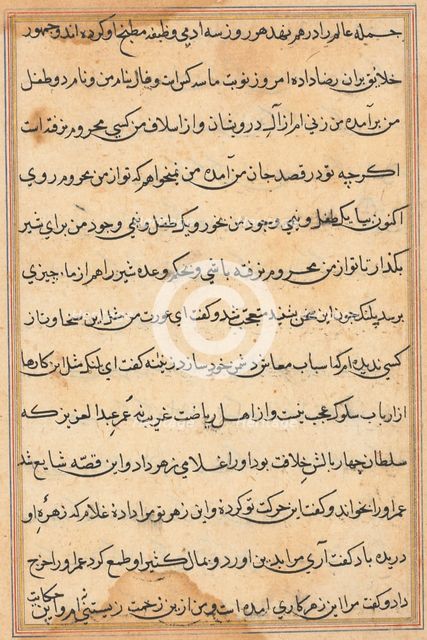 جمله عالم را در هم نفد هر روز سه ادمی وظیفه مطبخ او کرده اند و جمهور
خلائق بران رضا داده امروز نوبت ما سه کس است و فال بنام من و نام دو طفل
من برآمده من زنی ام از آل درویشان و از اسلاف من کسی محروم نرفته است
اگرچه تو در قصد جان من آمده من نمیخواهم که تو از من محروم روی
اکنون بیا یک طفل و نیمی وجود من بخور و یک طفل و نیمی وجود من برای شیر
بگذار تا تو از من محروم نرفته باشی و بحکم وعده شیر را هم از ما چیزی
برسد پلنک چون این سخن بشنید متعجب شد و کفت ای عورت من مثل این سخاوت از
کسی ندیده ام که اسباب معاش دشمن خود سازد زن کفت ای پلنک مثل این کارها
از ارباب سلوک عجب نیست و از اهل ریاضت غریب نی عمر عبد العزیز که
سلطان چهار بالش خلافت بود او را غلامی زهر داد و این قصه شایع شد
عمر او را بخواند و کفت این حرکت تو کرده و این زهر تو مرا داده غلام که زهره او
دریده باد کفت آری مرا بدین اورد و بمال کثیر او طمع کرد عمر او را خرج
داد و کفت مرا این زهر کاری امده است و من ازین زحمت زیستنی ام و این
حکایت
Heritage
Heritage